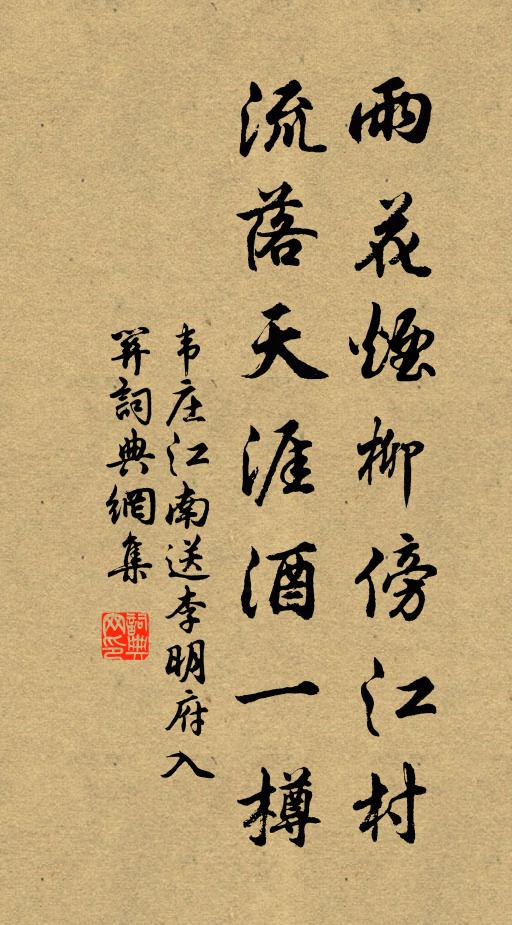 雨花煙柳傍江村
流落天涯酒一樽
韦庄江南送李明府入
关詞典網集
詞典
网印